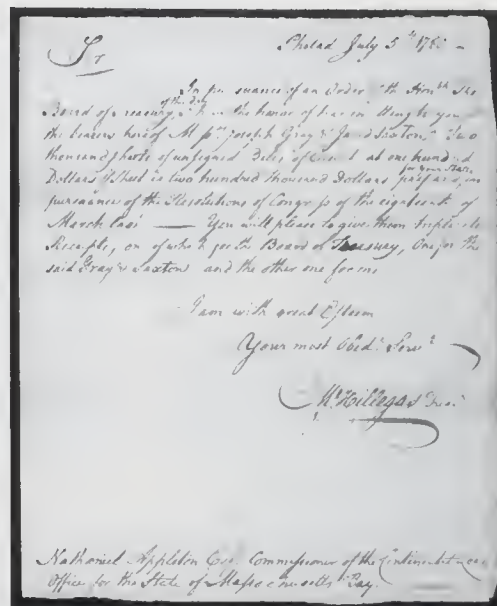 Sr
Philad July 5th 178
In pursuance of an Order of the Honble the
Board of Treasury of this day I have the honor of
the bearers hereof Joseph Gray & Jared Saxton, Two
thousand Sheets of unsigned Bills, of at one hundred
Dollars Sheet is two hundred thousand Dollars for your State in
pursuance of the Resolutions of Congress of the eighteenth of
March last — You will please to give them triplicate
Receipts, one of which for the Board of Treasury, One for the
said Gray & Saxton and the other one for me
I am with great Esteem
Your most Obedt Servt
M Hillegas Trear
Nathaniel Appleton Esqr Commissioner of the Continental
Office for the State of Massachusetts Bay.